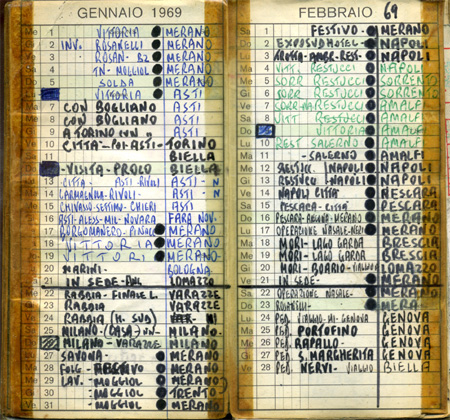 GENNAIO 1969
Me 1 VITTORIA MERANO
Gi 2 INV. ROSANELLI MERANO
3 ROSAN- MERANO
4 TN- MOGGIOL MERANO
SOLDA MERANO
VITTORIA ASTI
7 CON BOGLIANO ASTI
8 CON BOGLIANO ASTI
9 A TORINO CON ASTI
10 CITTA'- POI-ASTI- TORINO
11 BIELLA
-VISITA- PROLO BIELLA
13 CITTA- ASTI-RIVOLI ASTI- N
14 CARMAGNOLA-RIVOLI- ASTI- N
15 CHIVASSO-SETTIMO-CHIERI ASTI
16 ASTI-ALESS-MIL-NOVARA FARA NOV.
17 BORGOMANERO- MERANO
18 VITTORIA MERANO
19 VITTORI MERANO
20 MARINI- BOLOGNA
21 IN SEDE- LOMAZZO
22 RABBIA- FINALE L. VARAZZE
23 RABBIA VARAZZE
24 RABBIA (M. SUD)
25 MILANO-(CASA) MILANO-
MILANO- VARAZZE MILANO
27 SAVONA- MERANO
28 MERANO
29 LAV.- MOGGIOL MERANO
30 -MOGGIOL TRENTO-
31 -MOGGIOL MERANO
FEBBRAIO 69
Sa 1 FESTIVO- MERANO
Do 2 EXPOSUDHOTEL- NAPOLI
Lu 3 TROTTA-AMBR-REST- NAPOLI
4 VITT RESTUCCI NAPOLI
5 SORR RESTUCCI SORRENTO
6 SORR RESTUCCI SORRENTO
7 SORR-NA RESTUCCI AMALFI
8 VITT RESTUCCI AMALFI
VITTORIA AMALFI
10 REST SALERNO AMALFI
11 -SALERNO AMALFI
12 RESTUCC. NAPOLI NAPOLI
13 RESTUCC NAPOLI NAPOLI
14 NAPOLI CITTA' PESCARA
15 PESCARA- CITTA' PESCARA
16 PESCARA-ANCONA-MERANO MERANO
17 OPERAZIONE NASALE-NERVI MERANO
18 MORI- LAGO GARDA BRESCIA
19 MORI- LAGO GARDA MERANO
20 MORI- BOARIO-VIAGGIO LOMAZZO
21 IN SEDE- MERANO
22 OPERAZIONE NASALE- MERANO
MERANO
24 PED. VIAGGIO-MI-GENOVA GENOVA
25 PED. PORTOFINO GENOVA
26 PED. RAPALLO- GENOVA
27 PED. S. MARGHERITA GENOVA
28 PED. NERVI- VIAGGIO BIELLA